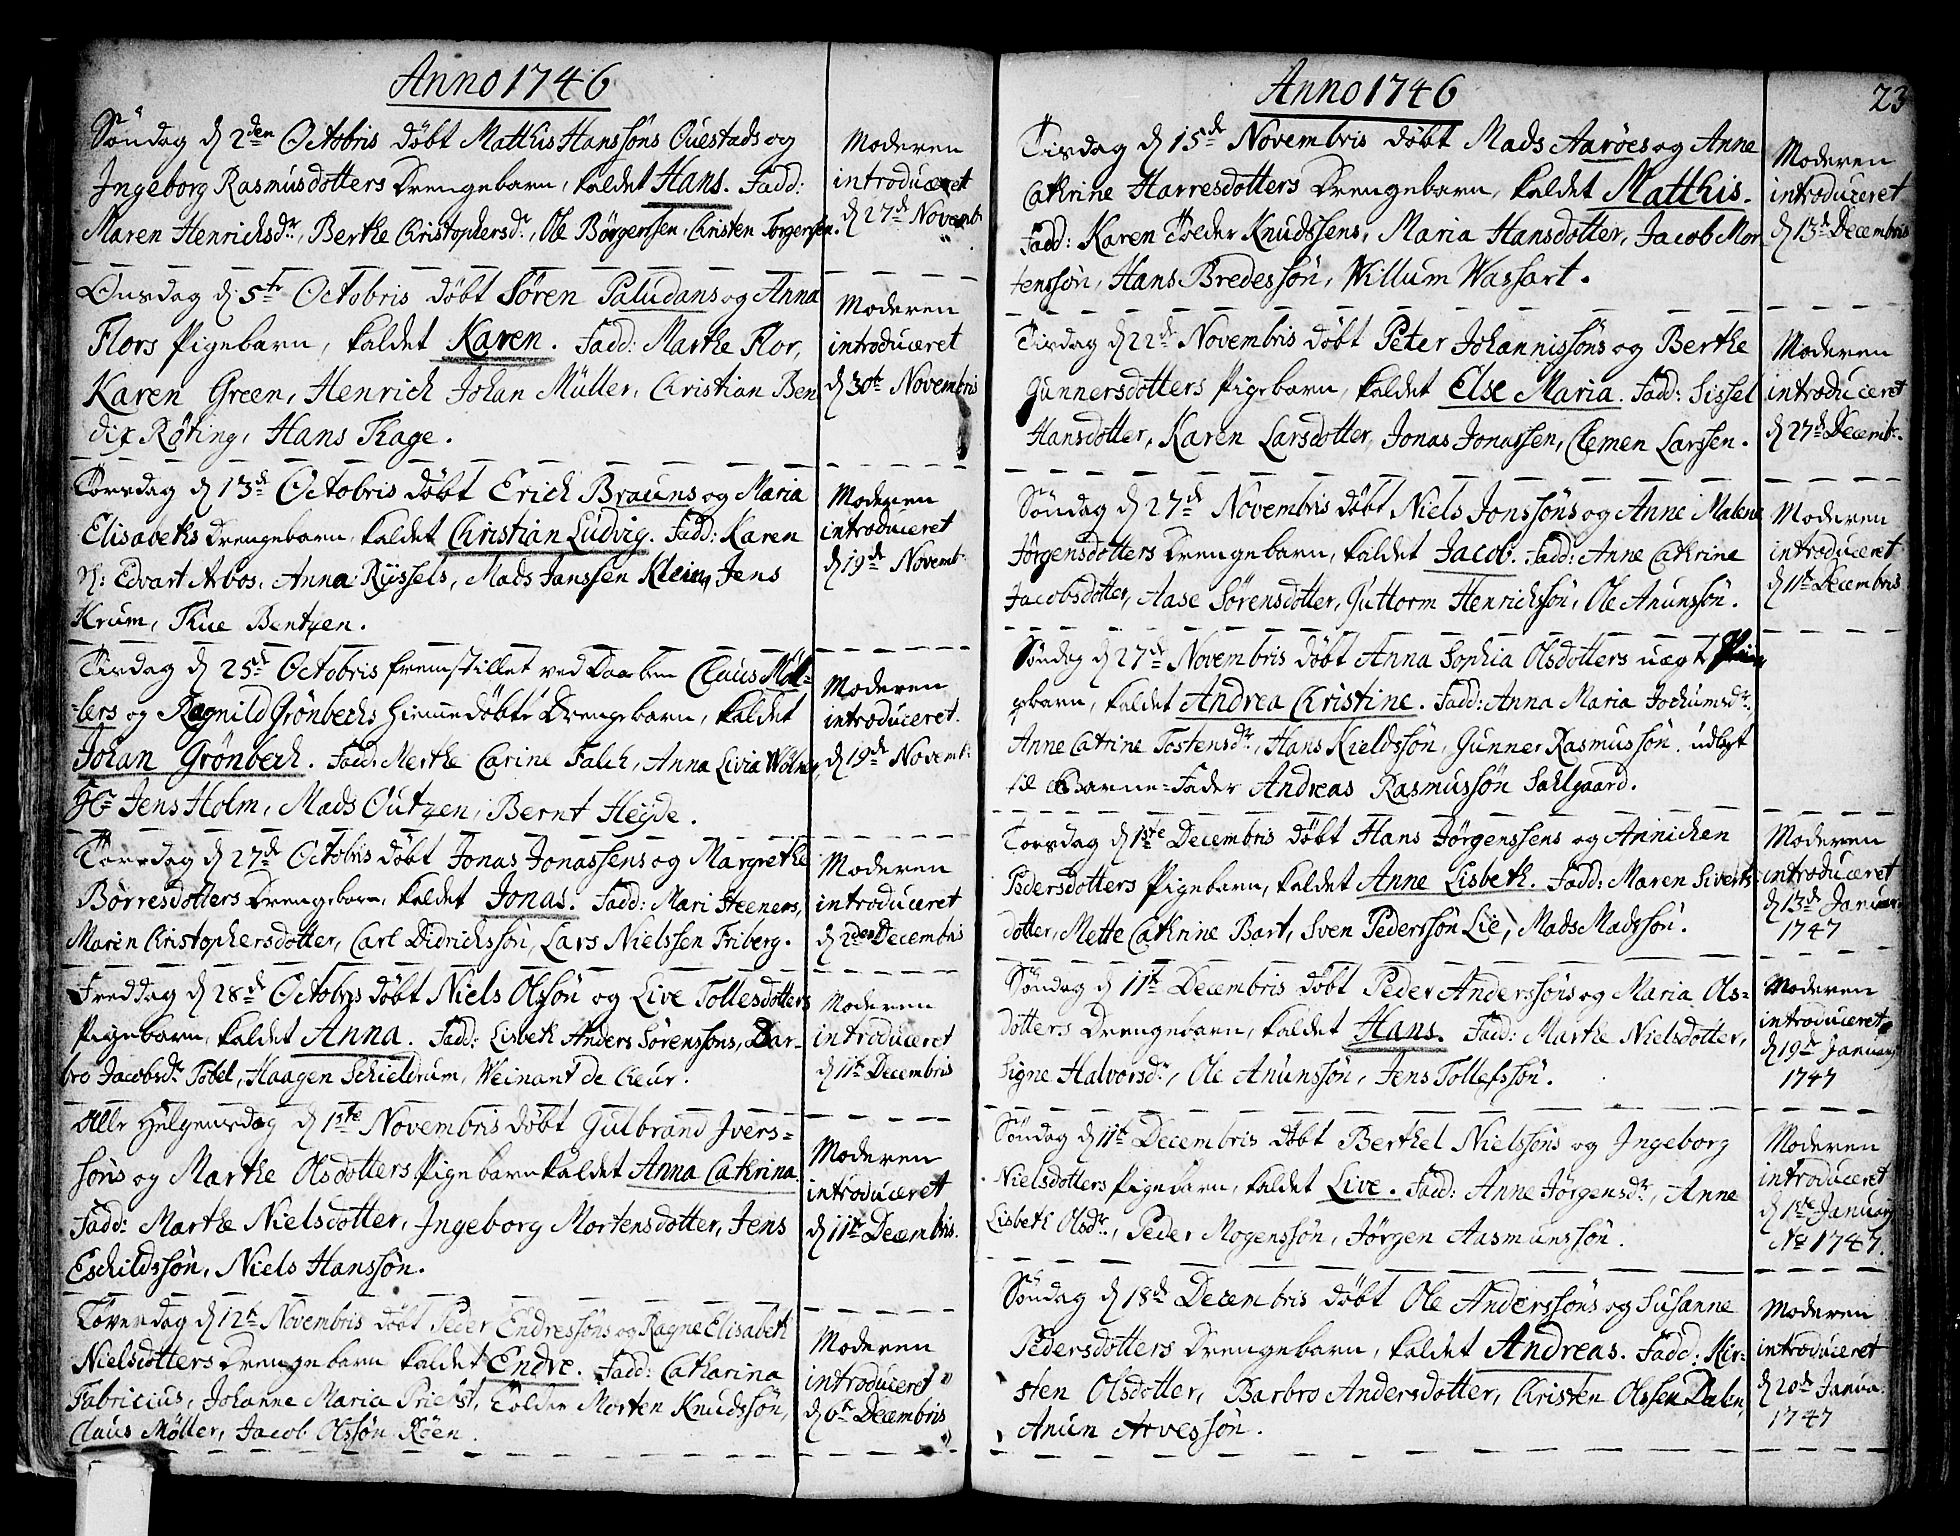 Anno 1746
Søndag d 2den Octobris døbt Matthis Hanssøns Ouestads og
Ingeborg Rasmusdotters Drengebarn, kaldet Hans. Fadd:
Maren Henrichsdr, Berthe Christophersdr, Ole Børgerssen, Christen Torgerssen.
Moderen
introduceret
d 27de Novemb:
Onsdag d 5te Octobris døbt Søren Paludans og Anna
Flors Pigebarn, kaldet Karen. Fadd: Marthe Flor,
Karen Green, Henrich Johan Müller, Christian Ben
dix Røting, Hans Thage.
Moderen
introduceret
d 30te Novembris
Torsdag d 13de Octobris døbt Erich Brauns og Maria
Elisabeths Drengebarn, kaldet Christian Ludvig. Fadd: Karen
Sl: Edvart Arbos, Anna Ryssels, Mads Janssen Klein, Jens
Krum, Thue Bentzen.
Moderen
introduceret
d 19de Novemb:
Tirsdag d 25de Octobris fremstillet ved Daaben Claus Møl-
lers og Ragnild Grønbechs hiemmedøbte Drengebarn, kaldet
Johan Grønbech. Fadd: Merthe Carine Falch, Anna Livia Wølner,
Hr Jens Holm, Mads Outzen, Bernt Heyde.
Moderen
introduceret.
d 19de Novemb:
Torsdag d 27de Octobris døbt Jonas Jonassens og Margrethe
Børresdotters Drengebarn, kaldet Jonas. Fadd: Mari Steeners,
Maren Christophersdotter, Carl Didrichssøn, Lars Nielssen Friberg.
Moderen
introduceret
d 2den Decembris
Freddag d 28de Octobris døbt Niels Olssøn og Live Tollesdotters
Pigebarn, kaldet Anna. Fadd: Lisbeth Anders Sørenssøns, Bar-
bro Jacobsdr Tobel, Haagen Schieldrum, Weinant de Cheur.
Moderen
introduceret
d 11te Decembris
Alle Helgensdag d 1ste Novembris døbt Gulbrand Ivers-
søns og Marthe Olsdotters Pigebarn kaldet Anna Cathrina.
Fadd: Marthe Nielsdotter, Ingeborg Mortensdotter, Jens
Eschildssøn, Niels Hanssøn.
Moderen
introduceret
d 11te Decembris.
Løverdag d 12te Novembris døbt Peder Endressøns og Ragne Elisabeth
Nielsdotters Drengebarn kaldet Endre. Fadd: Catharina
Fabricius, Johanne Maria Priebst, Tolder Morten Knudssøn,
Claus Møller, Jacob Olssøn Røen.
Moderen
introduceret
d 6te Decembris
Anno 1746
23
Tirsdag d 15de Novembris døbt Mads Aarøes og Anne
Cathrine Harresdotters Drengebarn, kaldet Matthis.
Fadd: Karen Tolder Knudssens, Maria Hansdotter, Jacob Mor
tenssøn, Hans Bredessøn, Willum Wassart.
Moderen
introduceret
d 13de Decembris
Tirsdag d 22de Novembris døbt Peter Johannissøns og Berthe
Gunnersdotters Pigebarn, kaldet Else Maria. Fadd: Sissel
Hansdotter, Karen Larsdotter, Jonas Jonassen, Clemen Larssen.
Moderen
introduceret
d 27de Decemb:
Søndag d 27de Novembris døbt Niels Jonssøns og Anne Malene
Jørgensdotters Drengebarn, kaldet Jacob. Fadd: Anne Cathrine
Jacobsdotter, Aase Sørensdotter, Guttorm Henrichssøn, Ole Anunssøn.
Moderen
introduceret
d 11te Decembris
Søndag d 27de Novembris døbt Anna Sophia Olsdotters uægt Pi
gebarn, kaldet Andrea Christine. Fadd: Anna Maria Jochumsdr,
Anne Catrine Tostensdr, Hans Kieldssøn, Gunner Rasmussøn. udlagt
til Barne-Fader Andreas Rasmussøn Sallgaard.
Torsdag d 1ste Decembris døbt Hans Jørgenssens og Anniken
Pedersdotters Pigebarn, kaldet Anne Lisbeth. Fadd: Maren Siverts-
dotter, Mette Cathrine Bart, Sven Pederssøn Lie, Mads Madssøn.
Moderen
introduceret
d 13de Januar
1747
Søndag d 11te Decembris døbt Peder Anderssøns og Maria Ols-
dotters Drengebarn, kaldet Hans. Fadd: Marthe Nielsdotter,
Signe Halvorsdr, Ole Anunssøn, Jens Tollefssøn.
Moderen
introduceret
d 19de January
1747
Søndag d 11te Decembris døbt Berthel Nielssøns og Ingeborg
Nielsdotters Pigebarn, kaldet Live. Fadd: Anne Jørgensdr, Anne
Lisbeth Olsdr, Peder Mogenssøn, Jørgen Aasmunssøn.
Moderen
introduceret
d 1ste January
Ao 1747.
Søndag d 18de Decembris døbt Ole Anderssøns og Susanne
Pedersdotters Drengebarn, kaldet Andreas. Fadd: Kir-
sten Olsdotter, Barbro Andersdotter, Christen Olssen Dalen,
Anun Arvessøn.
Moderen
introduceret
d 20de Janua:
1747